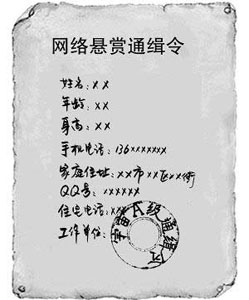 网络悬赏通缉令
姓名：xx
年龄：xx
身高：xx
手机电话：136xxxxxxx
家庭住址：xx市xx区xx街
QQ号：xxxxxx
住宅电话：xxx
工作单位：
宇宙A级通缉犯